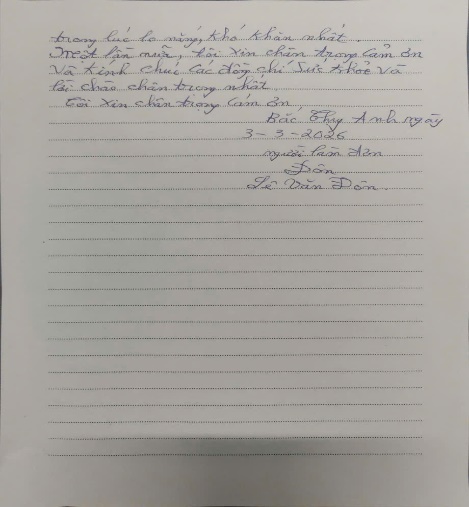 trong lúc lo nắng, khó khăn nhất.
Một lần nữa, tôi xin chân trọng cảm ơn
Và kính chúc các đồng chí sức khỏe và
lời chào chân trọng nhất
Tôi xin chân trọng cảm ơn,
Bắc Thụy Anh ngày
3-3-2026
người làm đơn
Đôn
Lê Văn Đôn.